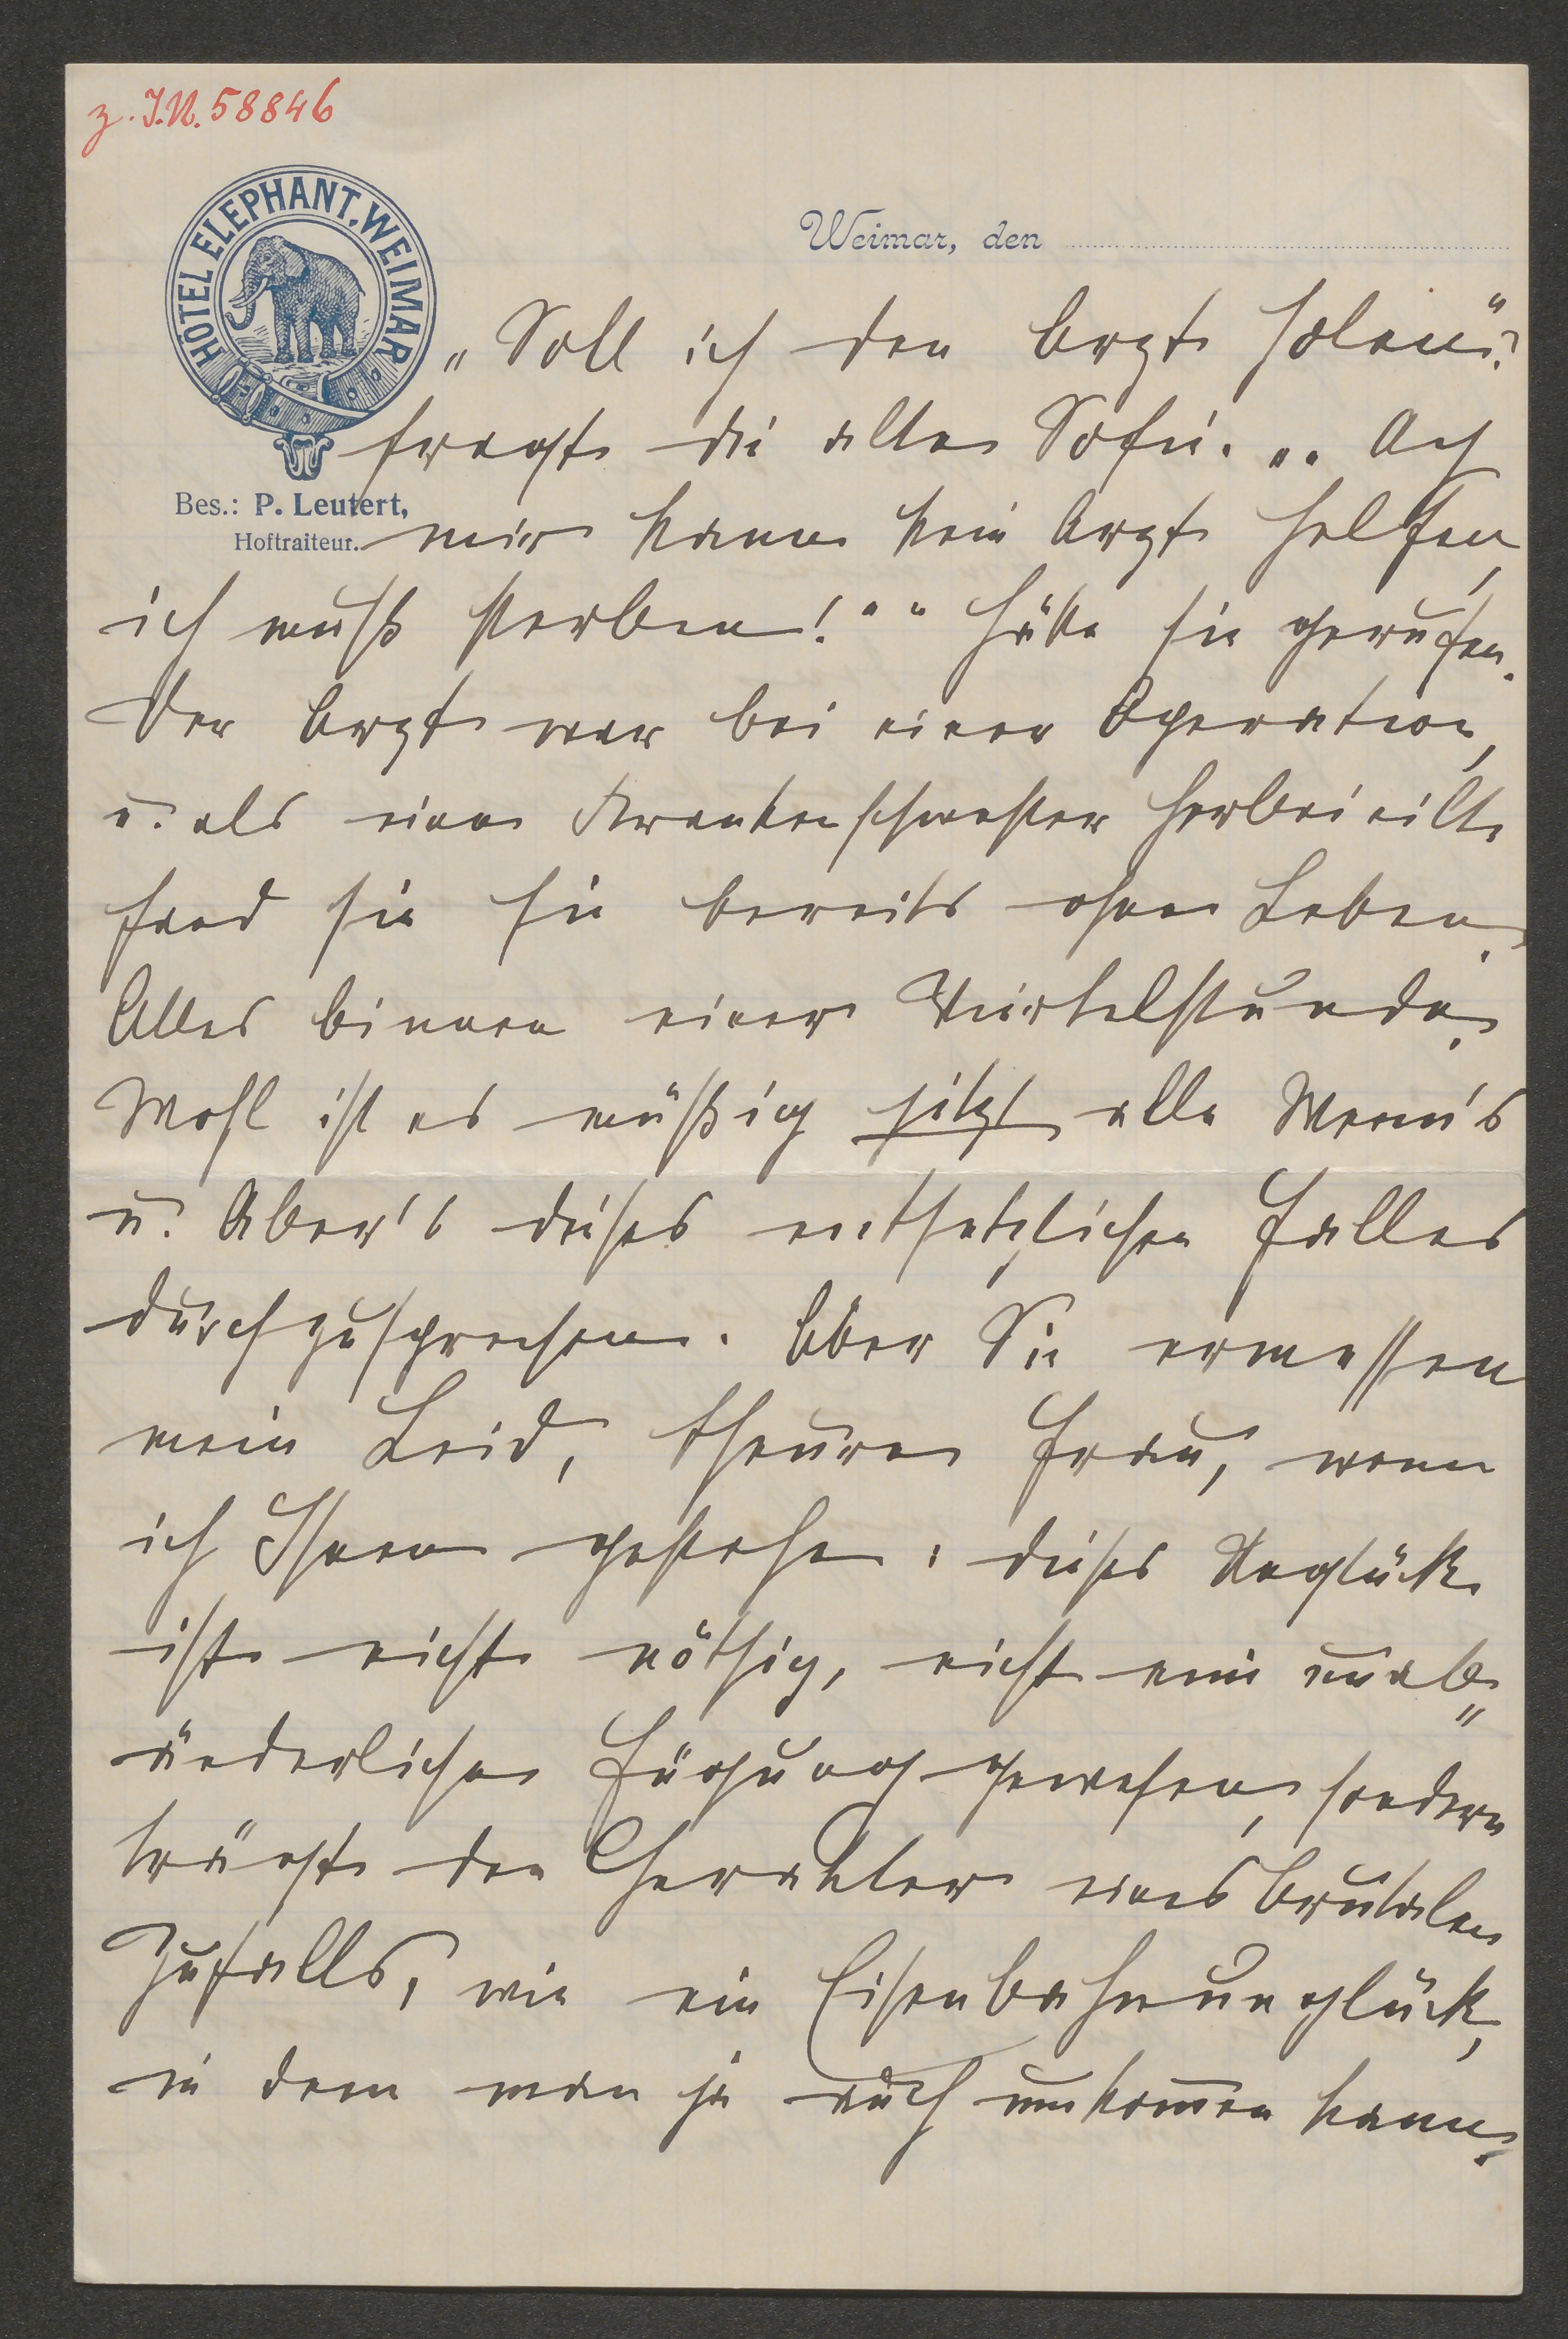 z. I.N. 58846
HÔTEL ELEPHANT. WEIMAR
Weimar, den
„Soll ich den Arzt holen“?
fragte die alte Sofie. „„Ach
Bes.: P. Leutert,
Hoftraiteur.
mir kann kein Arzt helfen,
ich muß sterben!““ hätte sie gerufen.
Der Arzt war bei einer Operation,
u. als eine Krankenschwester herbeieilte
fand sie sie bereits ohne Leben.
Alles binnen einer Viertelstunde.
Wohl ist es müßig jetzt alle Wenn's
u. Aber's dieses entsetzlichen Falles
durchzusprechen. Aber Sie ermessen
mein Leid, theure Frau, wenn
ich Ihnen gestehe: dieses Unglück
ist nicht nöthig, nicht eine unab„
änderliche Fügung gewesen, sondern
trägt den Charakter eines brutalen
Zufalls, wie ein Eisenbahnunglück,
in dem man ja auch umkom̄en kann.